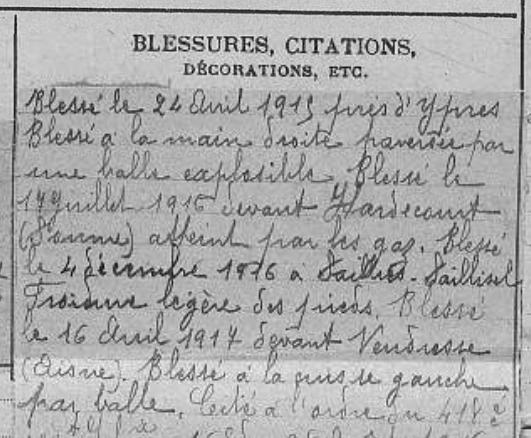 BLESSURES, CITATIONS,
DÉCORATIONS, ETC.
Blessé le 24 Avril 1915 près d'Ypres
Blessé à la main droite traversée par
une balle explosible. Blessé le
Juillet 1916 devant Hardecourt
(Somme) atteint par les gaz. Blessé
le 4 décembre 1916 à Saillisel
Froidure légère des pieds. Blessé
le 16 Avril 1917 devant Vendresse
(Aisne). Blessé à la cuisse gauche
par balle. Cité à l'ordre du 418e